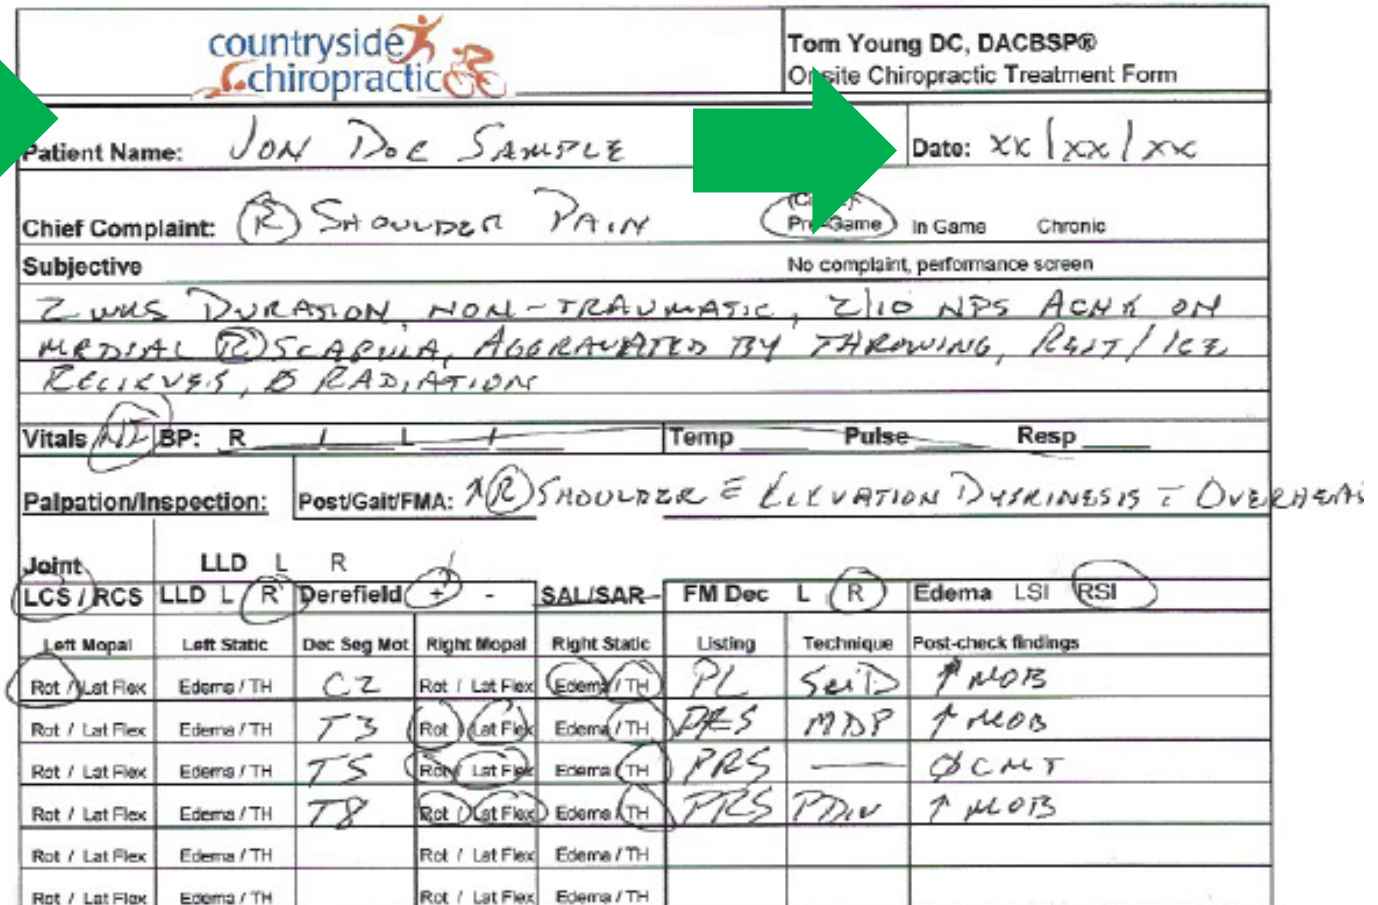 countryside
chiropractic
Tom Young DC, DACBSP®
Onsite Chiropractic Treatment Form
Patient Name: JON DOE SAMPLE
Date: xx/xx/xx
Chief Complaint: (R) SHOULDER PAIN
Pre-Game In Game Chronic
Subjective No complaint, performance screen
2 WKS DURATION, NON-TRAUMATIC, 2/10 NPS ACHE ON
MEDIAL (R) SCAPULA, AGGRAVATED BY THROWING, REST/ICE
RELIEVES, Ø RADIATION
Vitals BP: R / L / Temp Pulse Resp
Palpation/Inspection: Post/Gait/FMA: ↑(R) SHOULDER ELEVATION DYSKINESIS OVERHEAD
Joint LLD L R
LCS / RCS LLD L R Derefield + - SAL/SAR FM Dec L R Edema LSI RSI
Left Mopal Left Static Dec Seg Mot Right Mopal Right Static Listing Technique Post-check findings
Rot / Lat Flex Edema / TH C2 Rot / Lat Flex Edema / TH PL ↑ MOB
Rot / Lat Flex Edema / TH T3 Rot / Lat Flex Edema / TH PRS MDP ↑ MOB
Rot / Lat Flex Edema / TH T5 Rot / Lat Flex Edema / TH PRS — Ø CMT
Rot / Lat Flex Edema / TH T8 Rot / Lat Flex Edema / TH PRS PDiv ↑ MOB
Rot / Lat Flex Edema / TH Rot / Lat Flex Edema / TH
Rot / Lat Flex Edema / TH Rot / Lat Flex Edema / TH